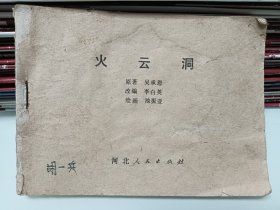 火云洞
原著 吴承恩
改编 李白英
绘画 池振亚
闵一兵
河北人民出版社